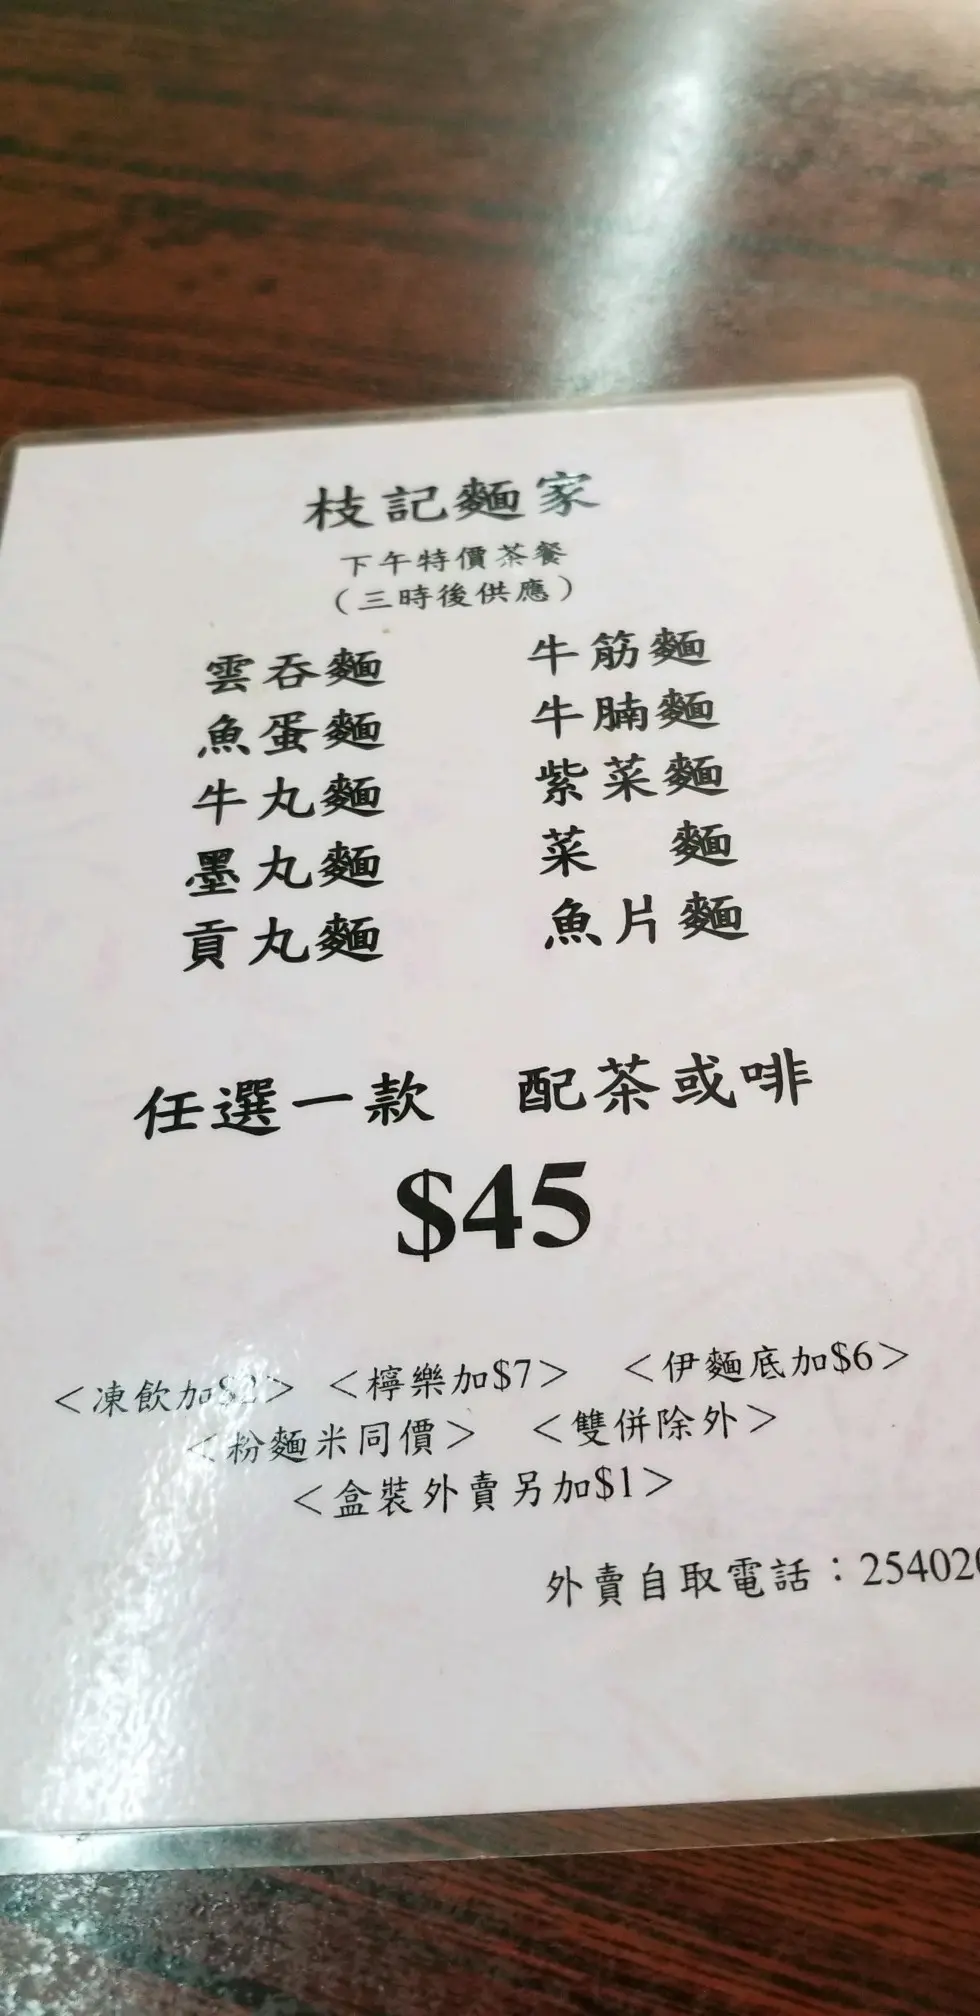 枝記麵家
下午特價茶餐
（三時後供應）
雲吞麵 牛筋麵
魚蛋麵 牛腩麵
牛丸麵 紫菜麵
墨丸麵 菜 麵
貢丸麵 魚片麵
任選一款 配茶或啡
$45
<凍飲加$2> <檸樂加$7> <伊麵底加$6>
<粉麵米同價> <雙併除外>
<盒裝外賣另加$1>
外賣自取電話：254020